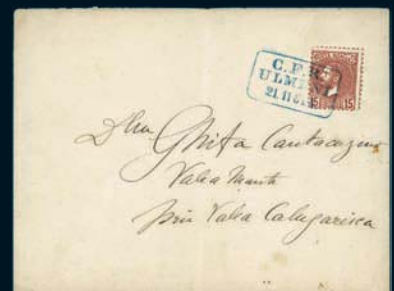 C.F.R.
ULMENI
21 II 81
15 15
Dlui Ghita Cantacuzino
Valea Mantei
prin Valea Calugarésca